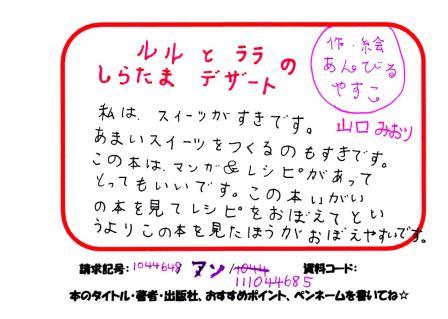 ルルとララの
しらたま デザート
作・絵
あんびる
やすこ
山口 みおり
私は、スイーツがすきです。
あまいスイーツをつくるのもすきです。
この本は、マンガ&レシピがあって
とってもいいです。この本いがい
の本を見てレシピをおぼえてとい
うよりこの本を見たほうがおぼえやすいです。
請求記号: 1044648 アン/1044 資料コード:
111044685
本のタイトル・著者・出版社、おすすめポイント、ペンネームを書いてね☆